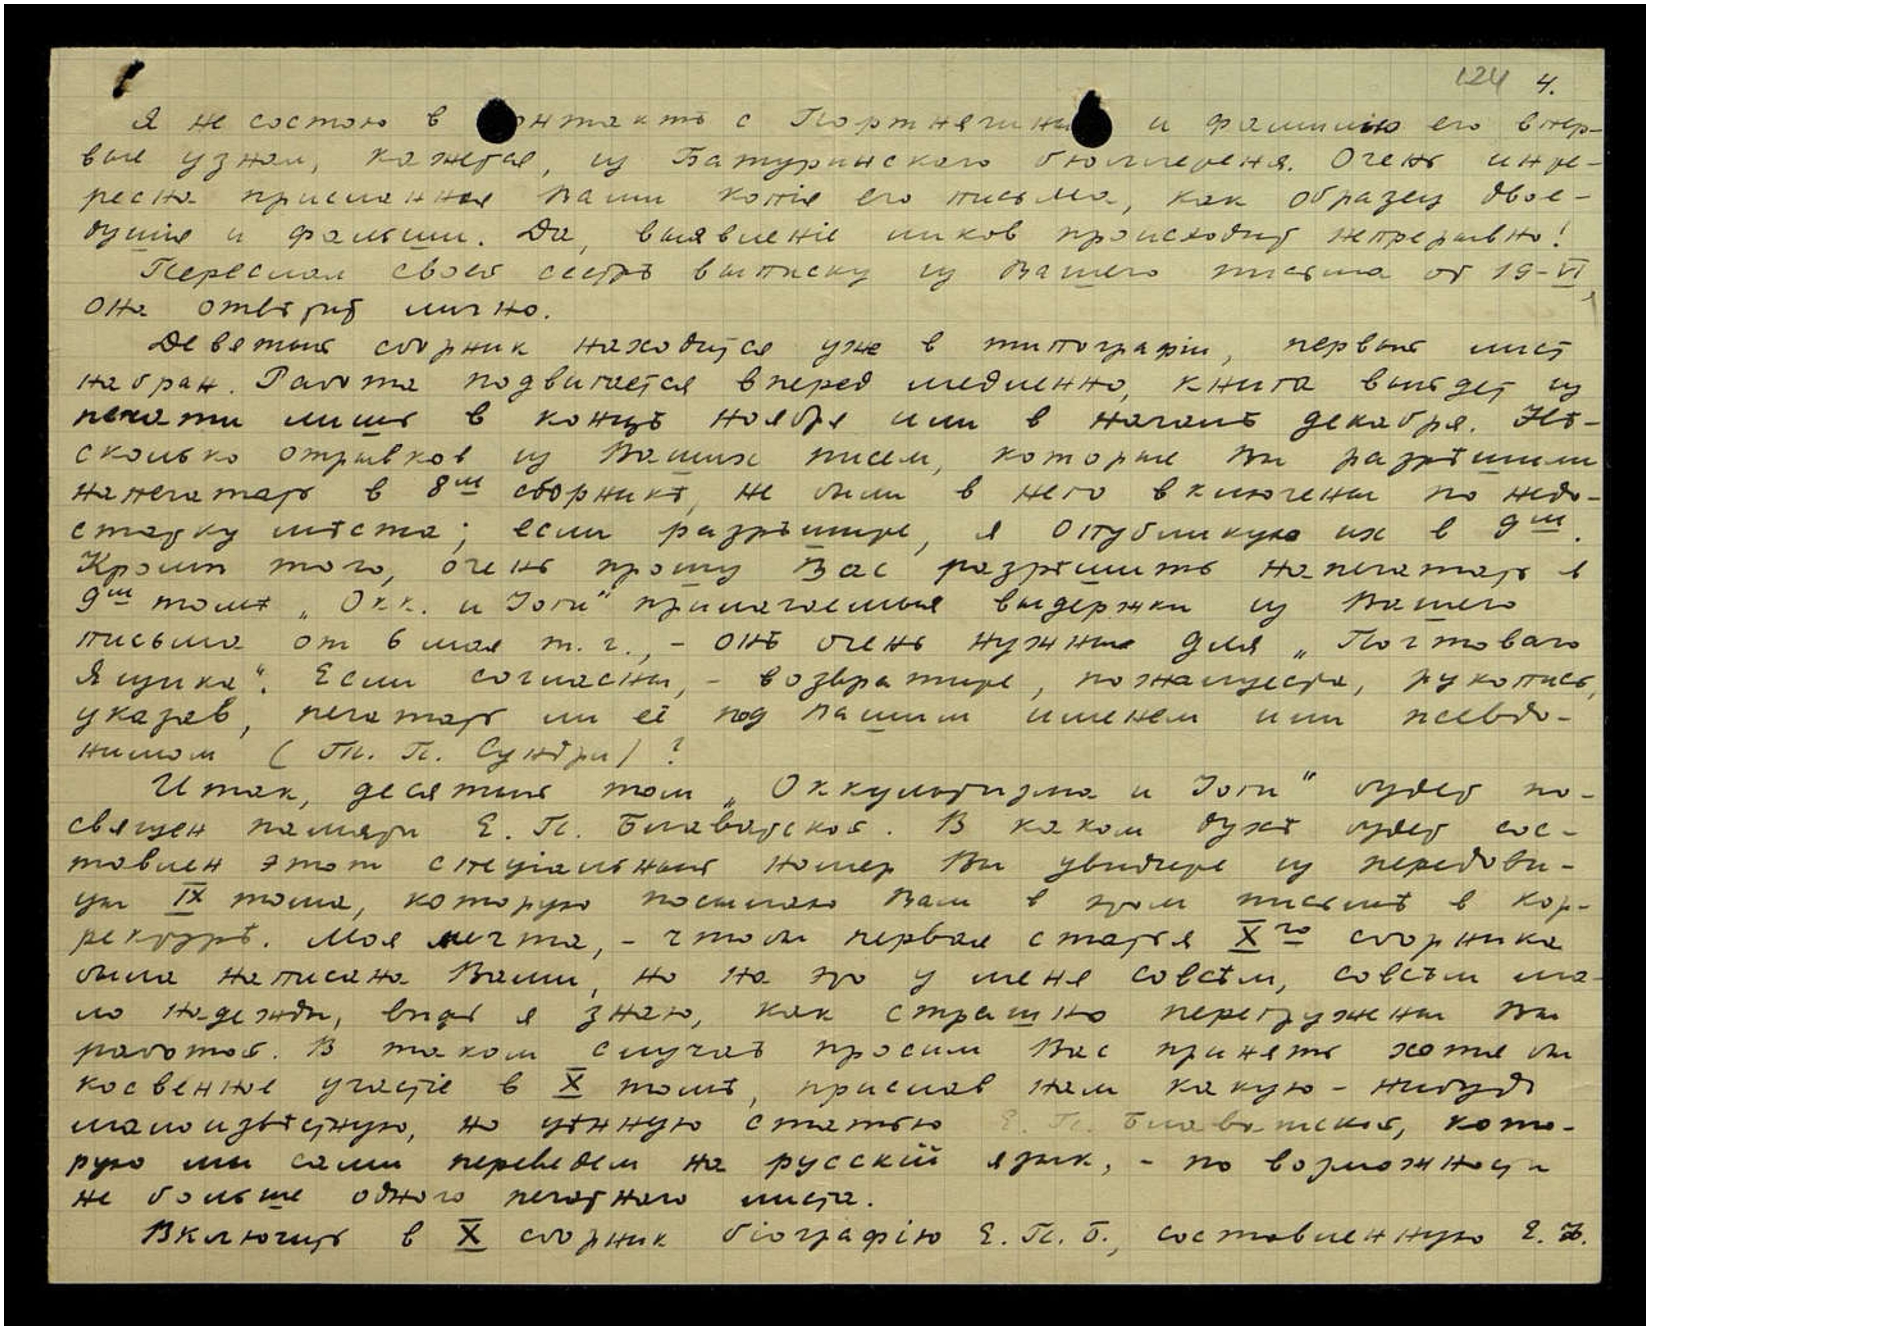 124 4.
Я не состою в онтактѣ с Портнягины и фамилію его впер-
вые узнал, кажется, из Батуринского бюллетеня. Очень инте-
ресна присланная Вами копія его письма, как образец двое-
душія и фальши. Да, выявленіе ликов происходит непрерывно!
Переслал своей сестрѣ выписку из Вашего письма от 19-VI,
она отвѣтит лично.
Девятый сборник находится уже в типографіи, первый лист
набран. Работа подвигается вперед медленно, книга выйдет из
печати лишь в концѣ ноября или в началѣ декабря. Нѣ-
сколько отрывков из Ваших писем, которые Вы разрѣшили
напечатать в 8м сборникѣ, не были в него включены по недо-
статку мѣста; если разрѣшите, я опубликую их в 9м.
Кромѣ того, очень прошу Вас разрѣшить напечатать в
9м томѣ „Окк. и Іоги" прилагаемыя выдержки из Вашего
письма от 6 мая т. г., - онѣ очень нужны для „Почтоваго
Ящика". Если согласны, - возвратите, пожалуйста, рукопись,
указав, печатать ли её под Вашим именем или псевдо-
нимом ( Сундри) ?
Итак, десятый том „Оккультизма и Іоги" будет по-
священ памяти Е. П. Блаватской. В каком духѣ будет сос-
тавлен этот спеціальный номер Вы увидите из передови-
цы IX тома, которую посылаю Вам в этом письмѣ в кор-
ректурѣ. Моя мечта, - чтобы первая статья Xго сборника
была написана Вами, но на это у меня совсѣм, совсѣм ма-
ло надежды, видь я знаю, как страшно перегружены Вы
работой. В таком случаѣ просим Вас принять хотя бы
косвенное участіе в X томѣ, прислав нам какую-нибудь
малоизвѣстную, но цѣнную статью Е. П. Блаватской, кото-
рую мы сами переведем на русскій язык, - по возможности
не больше одного печатного листа.
Включить в X сборник біографію Е. П. Б., составленную Е. Ф.